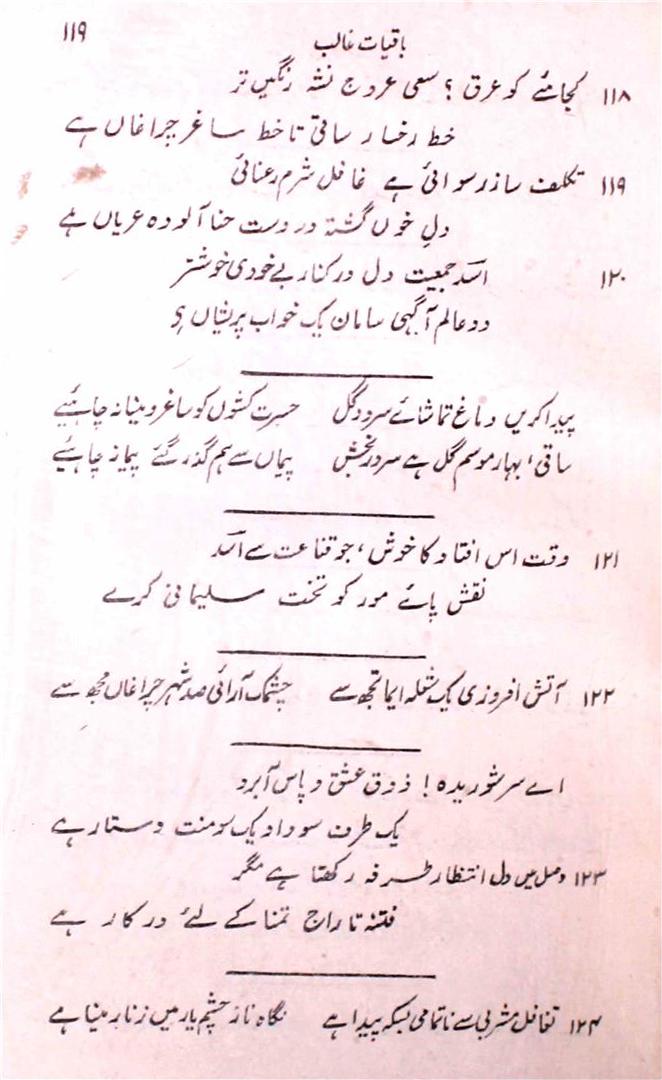 ۱۱۹
باقیات غالب
۱۱۸ کجا مئے کو عرق؟ سعی عروج نشہ رنگیں تر
خط رخسار ساقی تا خط ساغر چراغاں ہے
۱۱۹ تکلف ساز رسوائی ہے غافل شرم رعنائی
دلِ خوں گشتہ در دست حنا آلودہ عریاں ہے
۱۲۰ اسد جمعیت دل در کنار بے خودی خوشتر
دو عالم آگہی سامان یک خواب پریشاں ہے
پیدا کریں دماغ تماشائے سرو و گل حسرت کشوں کو ساغر و مینا نہ چاہیئے
ساقی، بہار موسم گل ہے سرور بخش پیماں سے ہم گذر گئے پیمانہ چاہیئے
۱۲۱ وقت اس افتادہ کا خوش، جو قناعت سے اسد
نقش پائے مور کو تخت سلیمانی کرے
۱۲۲ آتش افروزی یک شعلہ ایما تجھ سے چشمک آرائی صد شہر چراغاں مجھ سے
اے سر شوریدہ! ذوق عشق و پاس آبرو
یک طرف سودا و یک سو منت دستار ہے
۱۲۳ وصل میں دل انتظار طرفہ رکھتا ہے مگر
فتنہ تاراج تمنا کے لئے درکار ہے
۱۲۴ تغافل مشربی سے ناتمامی بسکہ پیدا ہے نگاہ ناز چشم یار میں زنار مینا ہے